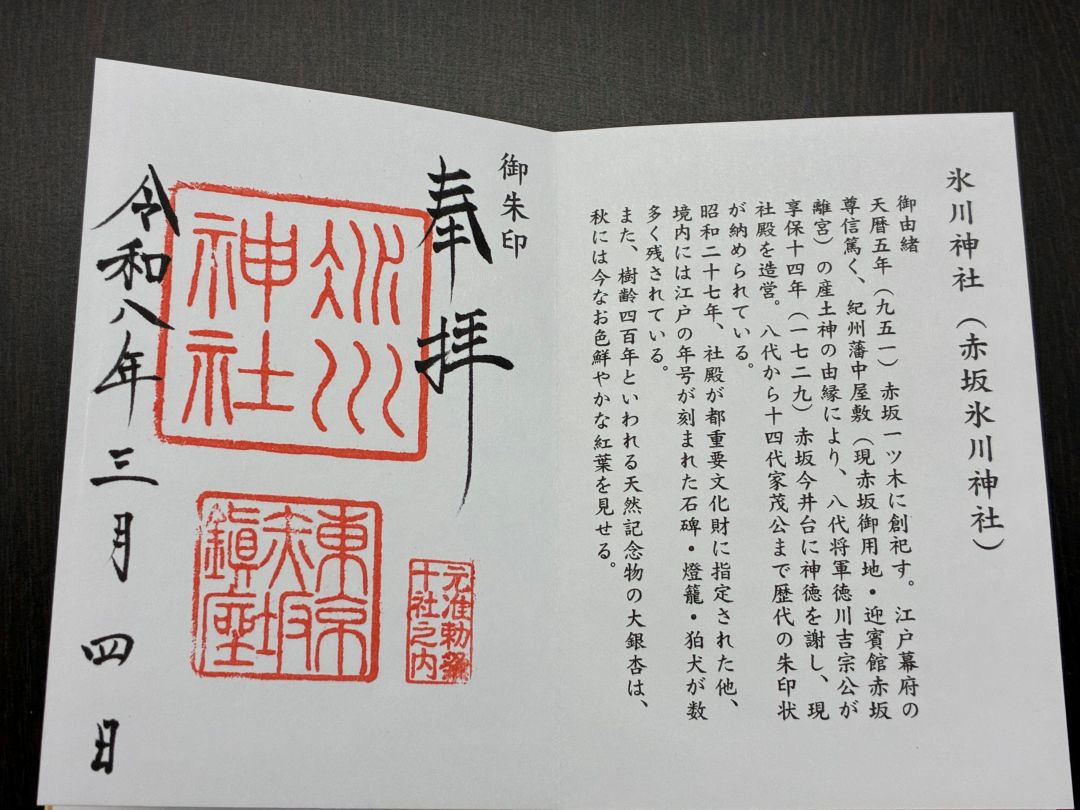 氷川神社（赤坂氷川神社）
御由緒
天暦五年（九五一）赤坂一ツ木に創祀す。江戸幕府の
尊信篤く、紀州藩中屋敷（現赤坂御用地・迎賓館赤坂
離宮）の産土神の由縁により、八代将軍徳川吉宗公が
享保十四年（一七二九）赤坂今井台に神徳を謝し、現
社殿を造営。八代から十四代家茂公まで歴代の朱印状
が納められている。
昭和二十七年、社殿が都重要文化財に指定された他、
境内には江戸の年号が刻まれた石碑・燈籠・狛犬が数
多く残されている。
また、樹齢四百年といわれる天然記念物の大銀杏は、
秋には今なお色鮮やかな紅葉を見せる。
御朱印
奉拝
氷川
神社
東京
赤坂
鎮座
元准勅祭
十社之内
令和八年三月四日